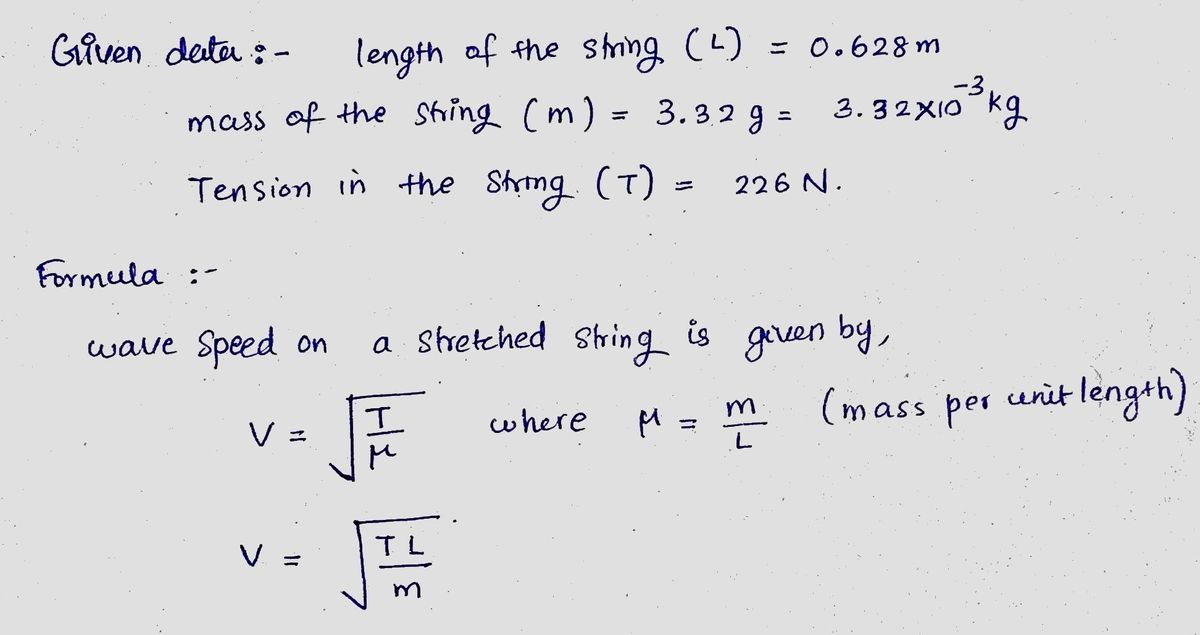 Given data :- length of the string (L) = 0.628 m
mass of the string (m) = 3.32 g = 3.32 x 10⁻³ kg
Tension in the string (T) = 226 N.
Formula :-
wave speed on a stretched string is given by,
V = √(T/μ) where μ = m/L (mass per unit length)
V = √(TL/m)